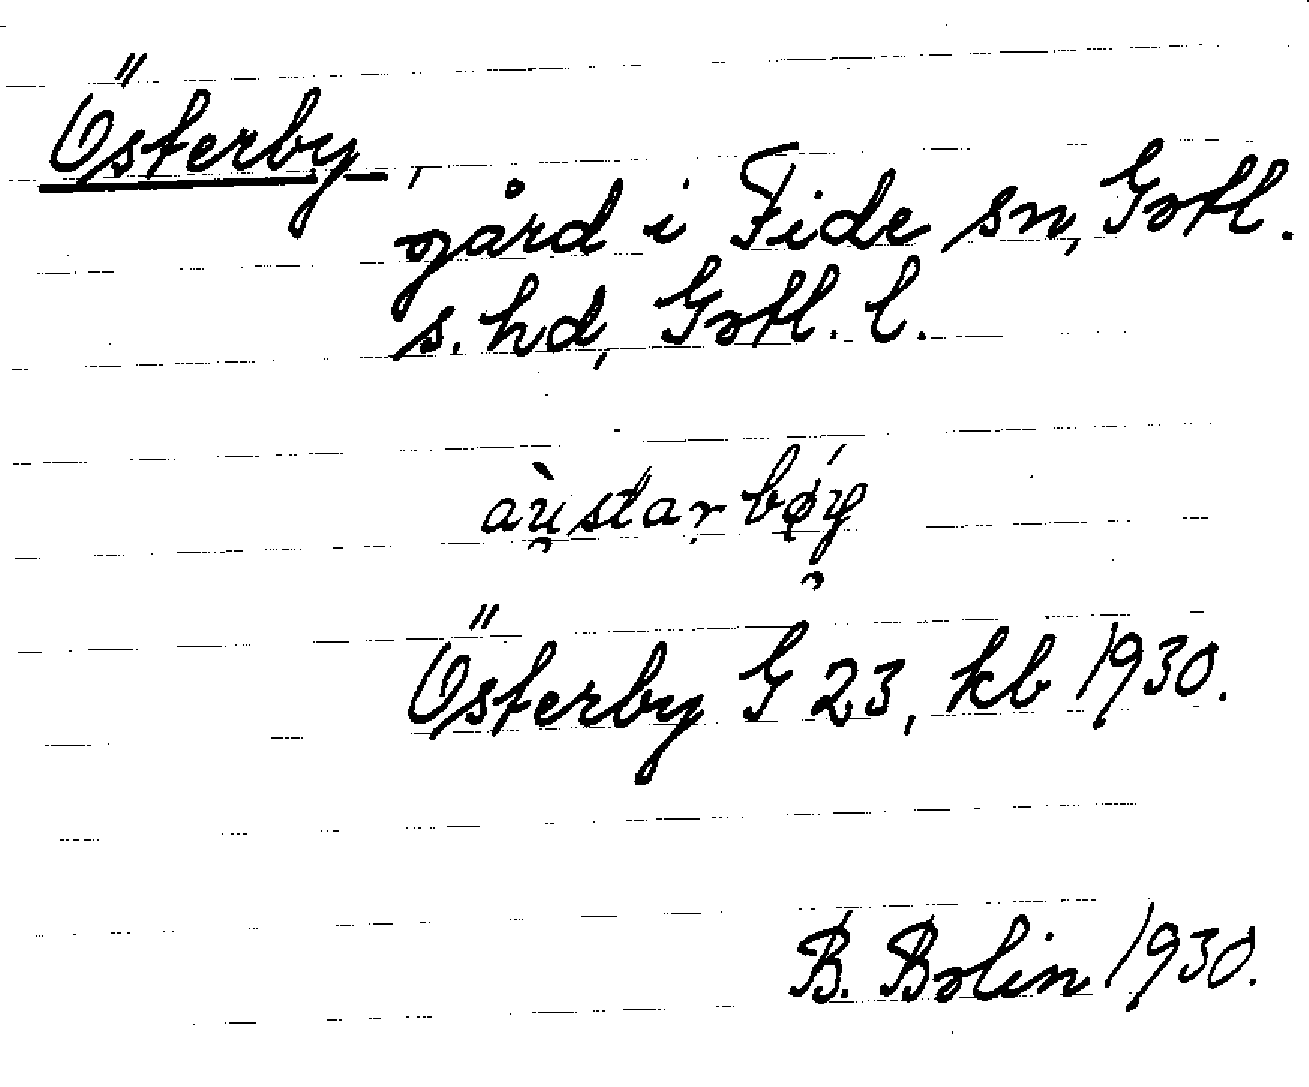 Österby,
gård i Fide sn, Gotl.
s. hd, Gotl. l.
aù̯starbøy̯
Österby G 23, kb 1930.
B. Bolin 1930.